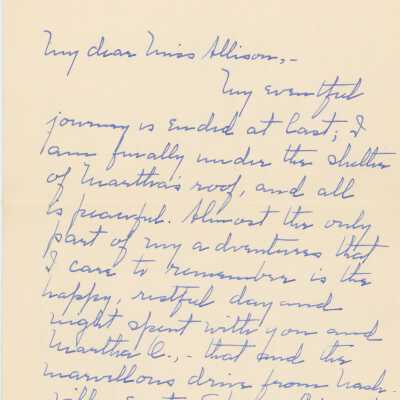 My dear Miss Allison,-
My eventful
journey is ended at last; I
am finally under the shelter
of Martha's roof, and all
is peaceful. Almost the only
part of my adventures that
I care to remember is the
happy, restful day and
night spent with you and
Martha C., - that and the
marvellous drive from Nash-